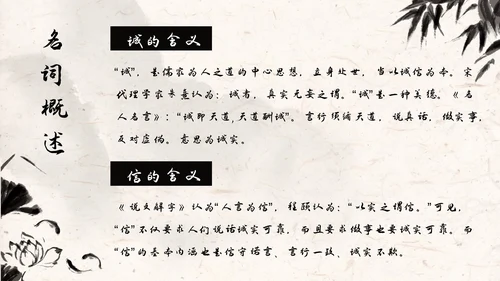 名词概述
诚的含义
“诚”，是儒家为人之道的中心思想，立身处世，当以诚信为本。宋
代理学家朱熹认为：诚者，真实无妄之谓。“诚”是一种美德。《名
人名言》：“诚即天道，天道酬诚”。言行须循天道，说真话，做实事，
反对虚伪。意思为诚实。
信的含义
《说文解字》认为“人言为信”，程颐认为：“以实之谓信。”可见，
“信”不仅要求人们说话诚实可靠，而且要求做事也要诚实可靠。而
“信”的基本内涵也是信守诺言、言行一致、诚实不欺。